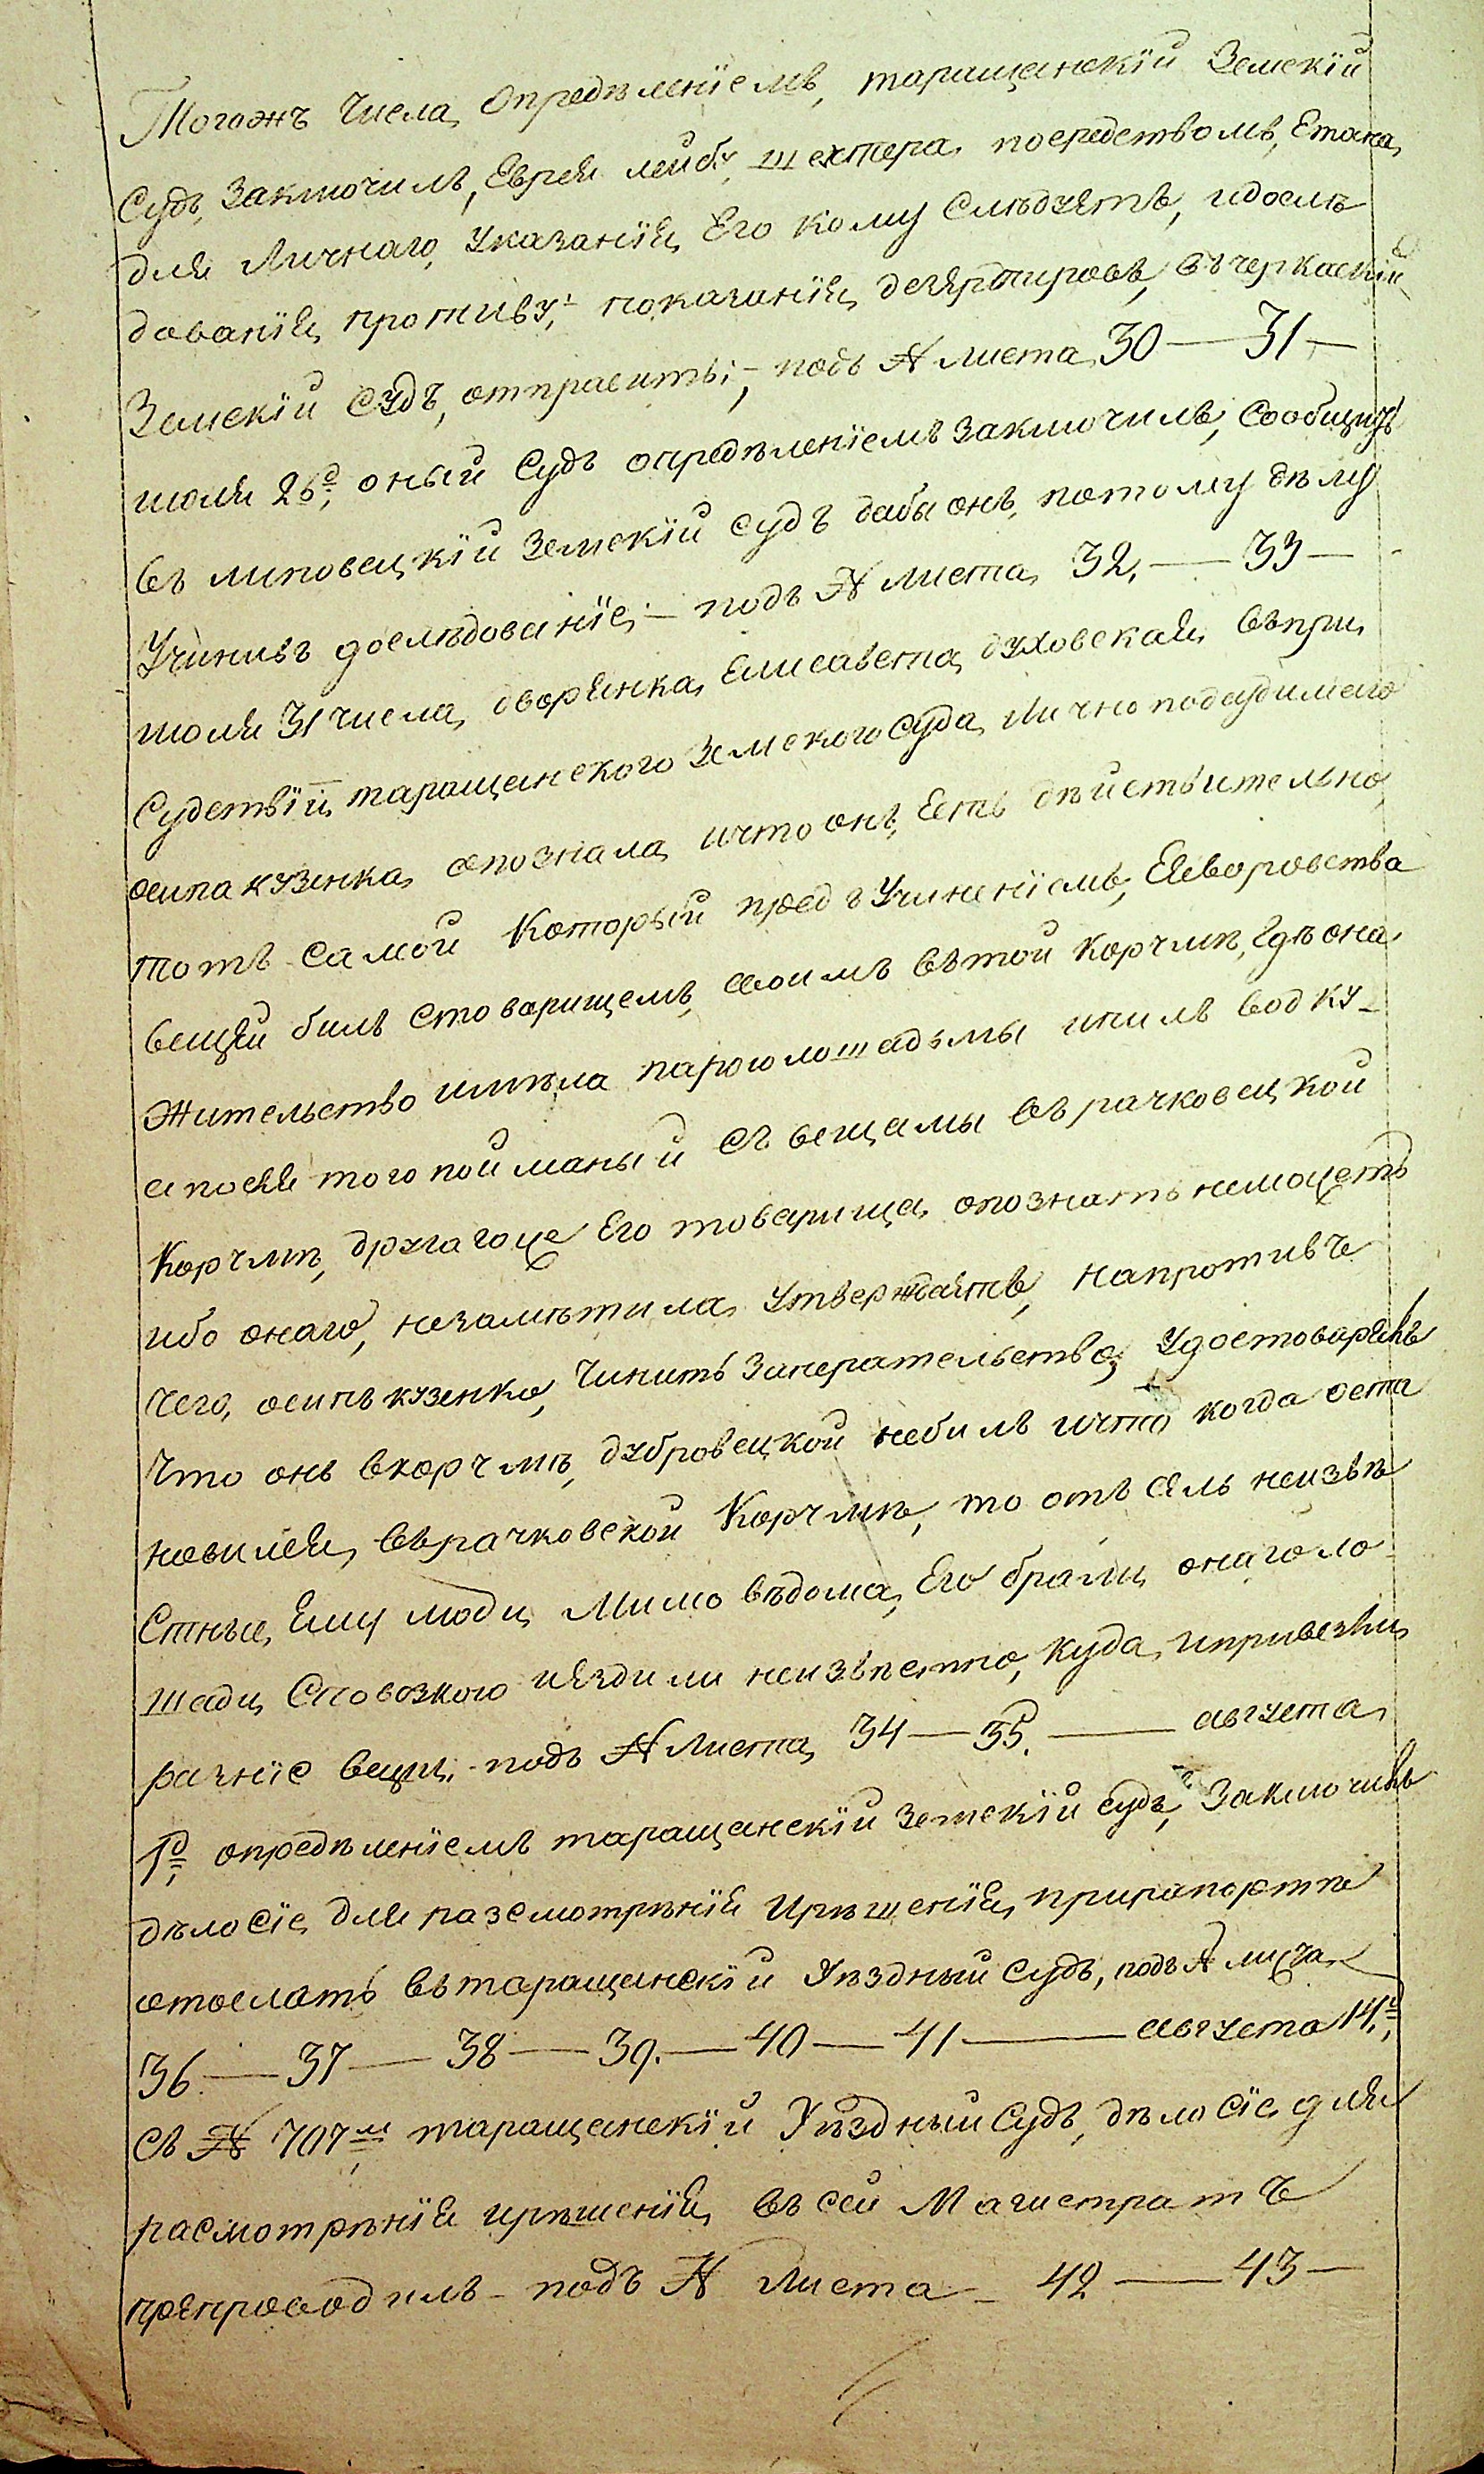 Тогожъ числа, опредѣленіемъ, таращанскій Земскій
Судъ, заключилъ, Еврея лейбу шехтера, посредствомъ, Етапа,
для личнаго, указанія, Его кому слѣдуетъ, идослѣ
дованія, противу, показанія, дезяртировъ, въчеркаскій
Земскій судъ, отправить; – подъ № листа, 30 — 31 —
июля 26го, оный Судъ опредѣленіемъ заключилъ, сообщить
въ липовецкій Земскій судъ дабы онъ, потому дѣлу
Учинивъ дослѣдованіе, – подъ № листа, 32, — 33 —
июля 31 числа, дворянка, Елисавета, духовская, въпри,
судствіи, таращанского Земского Суда, лично подсудимаго
осипа кузенка, опознала, ичто онъ, Есть дѣйствительно,
тотъ самой который предъ Учиненіемъ, Ея воровства
вещей билъ стоварищемъ, своимъ вътой корчмѣ, гдѣ она,
жительство имѣла парою лошадьмы ипилъ водку –
а после того пойманый съ вещамы въ рачковецкой
Корчмѣ, другагоже Его товарища, опознать неможетъ
ибо онаго, незамѣтила, утверждаетъ, напротивъ
чего, осипъ кузенко, чинить запирательство, удостоваряя
что онъ вкорчмѣ, дубровецкой небилъ ичто когда оста
новился, върачковской Корчмѣ, то отъ сель неизвѣ
стныя, Ему люди, мимо вѣдома, Его брали, онаго ло
шади, сповозкою иездили неизвѣстно, куда, ипривезли,
разніе вещи, – подъ № листа, 34 — 35. — августа,
1го, опредѣленіемъ таращанскій земскій судъ, заключилъ
дѣло сіе, для разсмотрѣнія ирѣшенія, прирапортѣ
отослать въ таращанскій Уѣздный судъ, подъ № листа,
36. — 37 — 38 — 39. — 40 — 41 — августа 14го,
съ № 707м, таращанскій Уѣздный судъ, дѣло сіе для
расмотрѣнія ирѣшенія, въ сей Магистратъ
препроводилъ – подъ № листа – 42 — 43 —